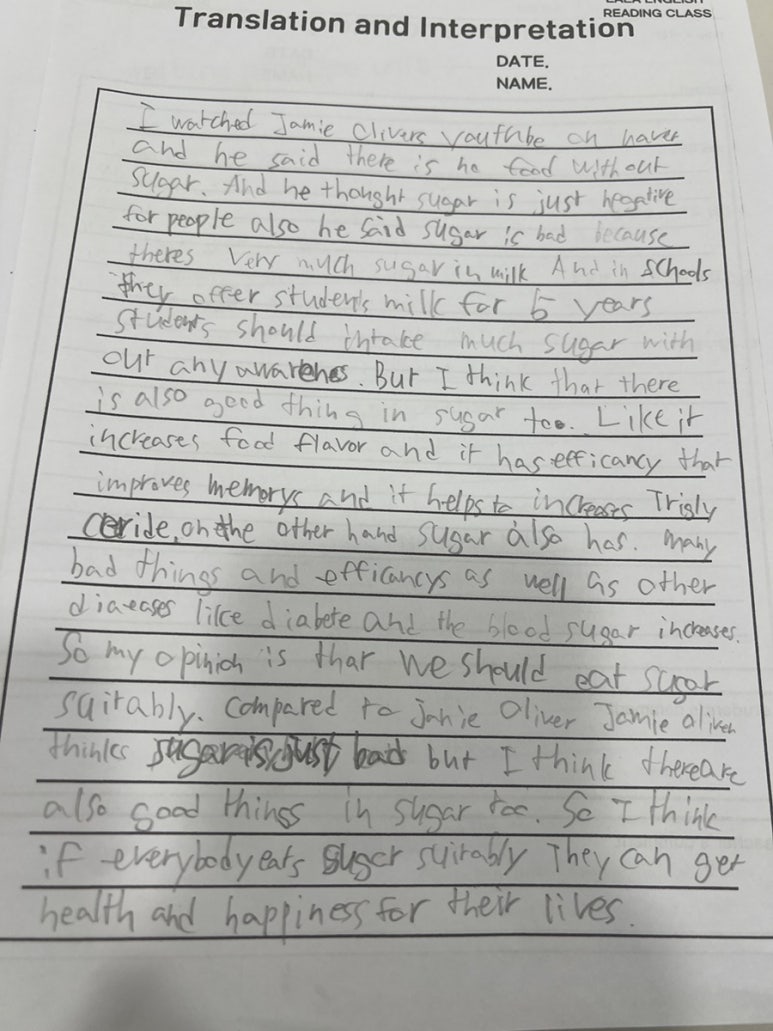 READING CLASS
Translation and Interpretation
DATE.
NAME.
I watched Jamie Olivers youthbe on naver
and he said there is no food without
sugar. And he thought sugar is just negative
for people also he said sugar is bad because
theres very much sugar in milk And in schools
they offer students milk for 5 years
students should intake much sugar with
out any awarenes. But I think that there
is also good thing in sugar too. Like it
increases food flavor and it has efficancy that
improves memorys and it helps to increases Trigly
ceride, on the other hand sugar also has. many
bad things and efficancys as well as other
diseases like diabete and the blood sugar increases.
So my opinion is that we should eat sugar
suitably. compared to Jamie Oliver Jamie oliver
thinks sugar is just bad but I think there are
also good things in sugar too. So I think
if everybody eats sugar suitably They can get
health and happiness for their lives.